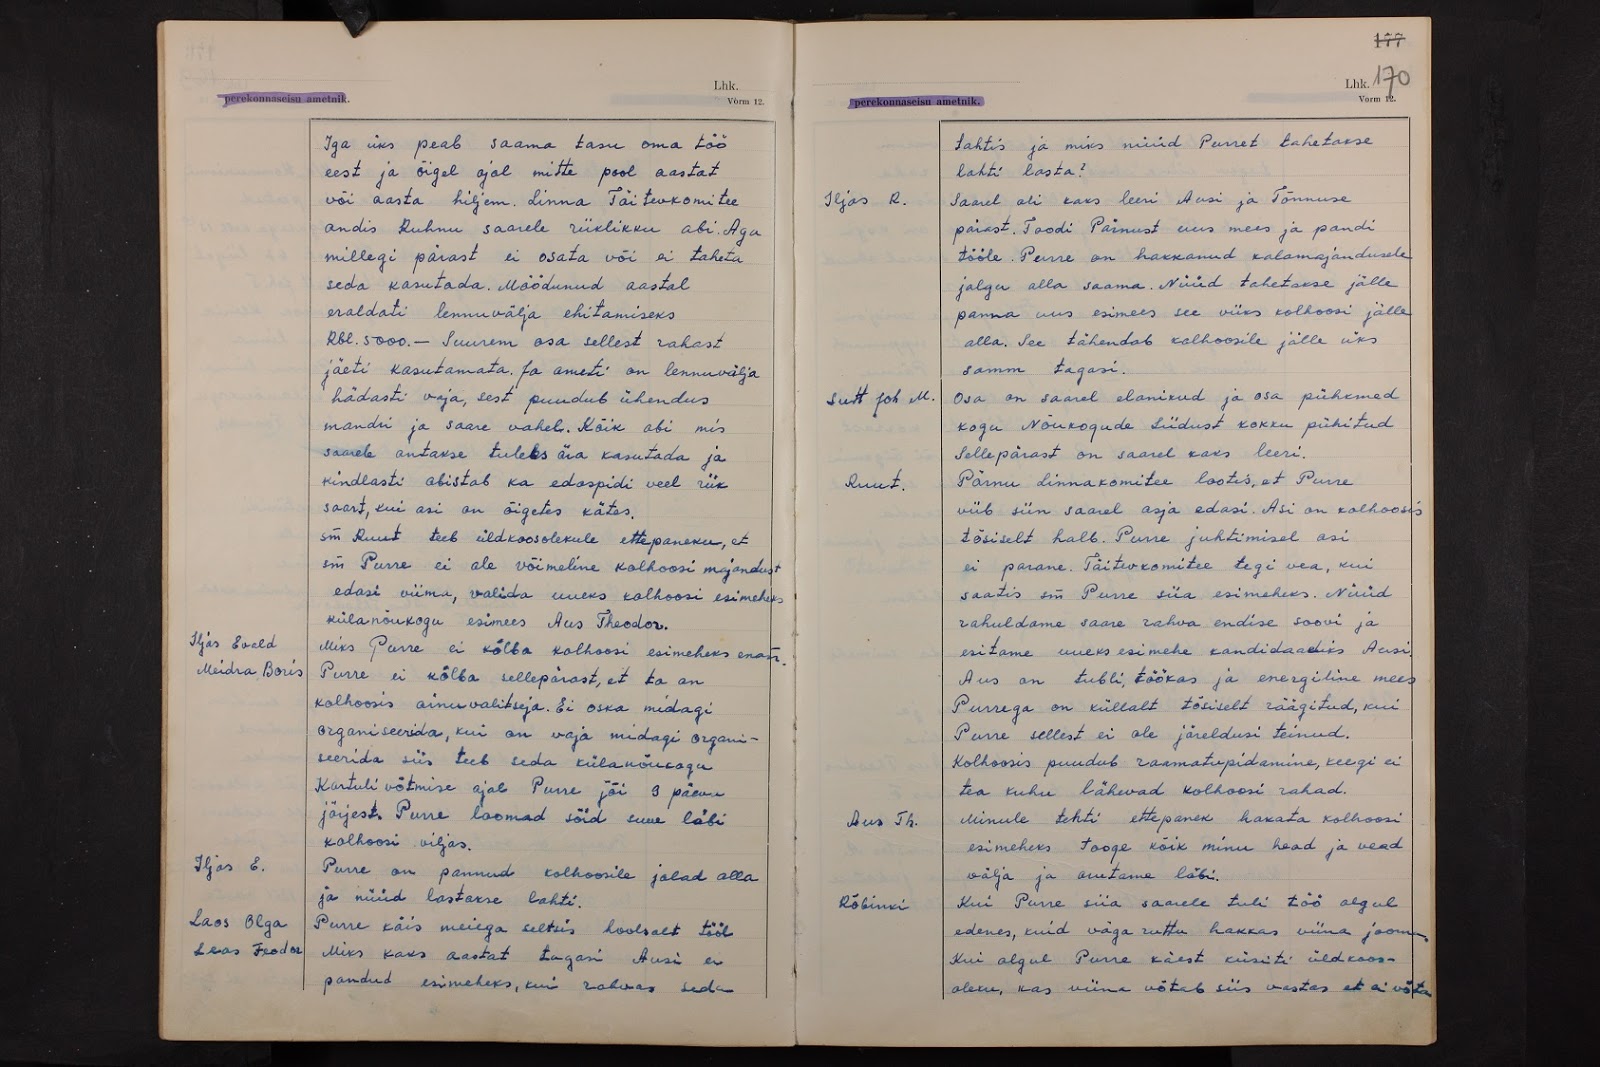 Lhk.
perekonnaseisu ametnik.
Vorm 12.
Iga üks peab saama tasu oma töö
eest ja õigel ajal mitte pool aastat
või aasta hiljem. Linna Täitevkomitee
andis Ruhnu saarele riiklikku abi. Aga
millegi pärast ei osata või ei taheta
seda kasutada. Möödunud aastal
eraldati lennuvälja ehitamiseks
Rbl. 5000.— Suurem osa sellest rahast
jäeti kasutamata. Ja ometi on lennuvälja
hädasti vaja, sest puudub ühendus
mandri ja saare vahel. Kõik abi mis
saarele antakse tuleks ära kasutada ja
kindlasti abistab ka edaspidi veel riik
saart, kui asi on õigetes kätes.
sm Ruut teeb üldkoosolekule ettepaneku, et
sm Purre ei ole võimeline kolhoosi majandust
edasi viima, valida uueks kolhoosi esimeheks
külanõukogu esimees Aus Theodor.
Iljas Evald
Miks Purre ei kõlba kolhoosi esimeheks enam.
Meidra Boris
Purre ei kõlba sellepärast, et ta on
kolhoosis ainuvalitseja. Ei oska midagi
organiseerida, kui on vaja midagi organi-
seerida siis teeb seda külanõukogu
Kartuli võtmise ajal Purre jõi 3 päeva
järjest. Purre loomad sõid suve läbi
kolhoosi viljas.
Iljas E.
Purre on pannud kolhoosile jalad alla
ja nüüd lastakse lahti.
Laos Olga
Purre käis meiega seltsis hoolsalt tööl
Laos Feodor
Miks kaks aastat tagasi Ausi ei
pandud esimeheks, kui rahvas seda
177
Lhk. 170
perekonnaseisu ametnik.
Vorm 12.
tahtis ja miks nüüd Purret tahetakse
lahti lasta?
Iljas R.
Saarel oli kaks leeri Ausi ja Tõnnuse
pärast. Toodi Pärnust uus mees ja pandi
tööle. Purre on hakkanud kalamajandusele
jalgu alla saama. Nüüd tahetakse jälle
panna uus esimees see viiks kolhoosi jälle
alla. See tähendab kolhoosile jälle üks
samm tagasi.
Sutt Joh M.
Osa on saarel elanikud ja osa pühkmed
kogu Nõukogude Liidust kokku pühitud
Sellepärast on saarel kaks leeri.
Ruut.
Pärnu Linnakomitee lootis, et Purre
viib siin saarel asja edasi. Asi on kolhoosis
tõsiselt halb. Purre juhtimisel asi
ei parane. Täitevkomitee tegi vea, kui
saatis sm Purre siia esimeheks. Nüüd
rahuldame saare rahva endise soovi ja
esitame uueks esimehe kandidaadiks Ausi.
Aus on tubli, töökas ja energiline mees
Purrega on küllalt tõsiselt räägitud, kui
Purre sellest ei ole järeldusi teinud.
Kolhoosis puudub raamatupidamine, keegi ei
tea kuhu lähevad kolhoosi rahad.
Aus Th.
Minule tehti ettepanek hakata kolhoosi
esimeheks tooge kõik minu head ja vead
välja ja arutame läbi.
Räbinki
Kui Purre siia saarele tuli töö algul
edenes, kuid väga ruttu hakkas viina jooma.
Kui algul Purre käest küsiti üldkoos-
oleku, kas viina võtab siis vastas et ei võta